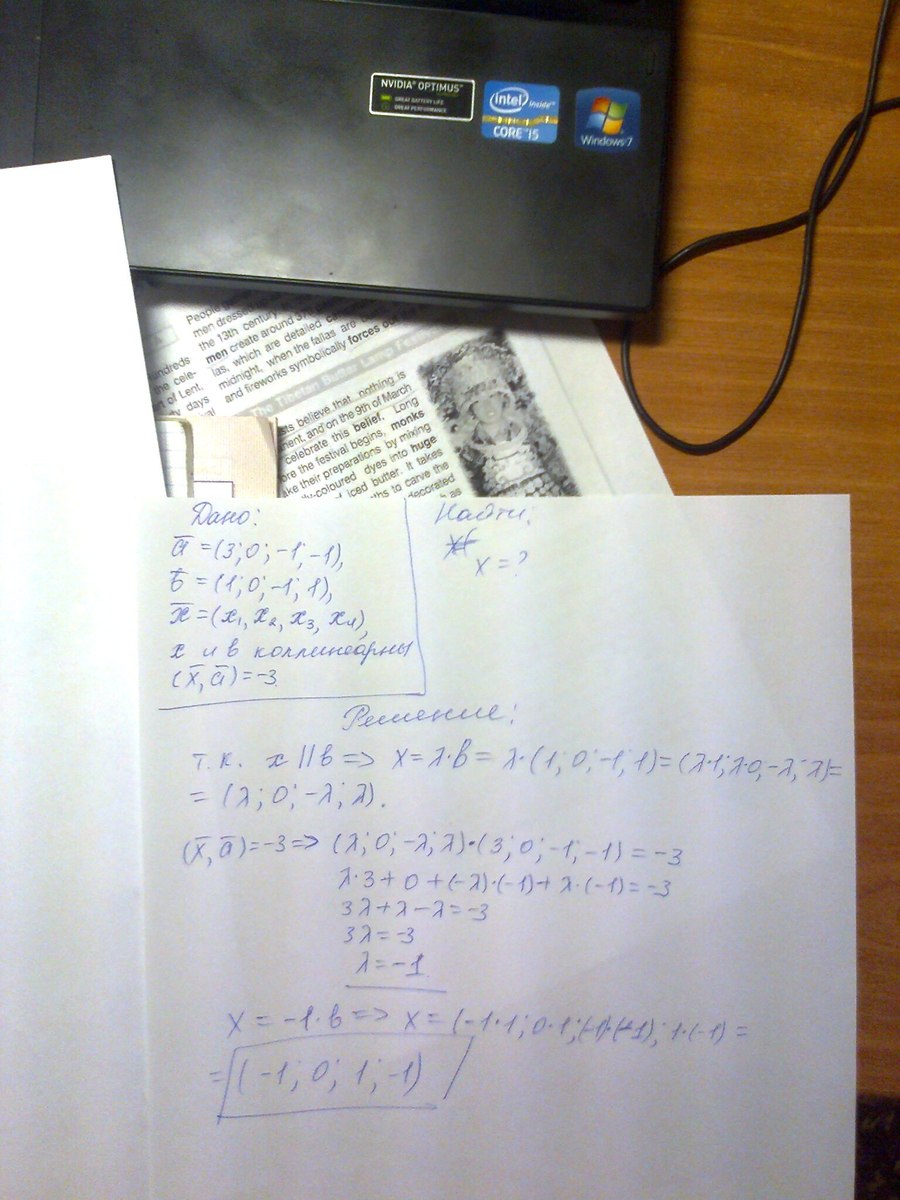 NVIDIA® OPTIMUS™
GREAT BATTERY LIFE
GREAT PERFORMANCE
intel inside™
CORE™ i5
Windows 7
People
men dresse
the 13th century
men create around 3
las, which are detailed
midnight, when the fallas are
and fireworks symbolically forces out
undreds
the cele-
rt of Lent.
ty days
ival
The Tibetan Butter Lamp Fes
sts believe that nothing is
nent, and on the 9th of March
celebrate this belief. Long
ore the festival begins, monks
ke their preparations by mixing
y-coloured dyes into huge
of iced butter. It takes
ths to carve the
decorated
h as
Дано:
a̅ = (3; 0; -1; -1),
b̅ = (1; 0; -1; 1),
x̅ = (x₁, x₂, x₃, x₄),
x и в коллинеарны
(x̅, a̅) = -3
Найти:
x = ?
Решение:
т.к. x || в => x = λ·в = λ·(1; 0; -1; 1) = (λ·1; λ·0; -λ; λ) =
= (λ; 0; -λ; λ).
(x̅, a̅) = -3 => (λ; 0; -λ; λ)·(3; 0; -1; -1) = -3
λ·3 + 0 + (-λ)·(-1) + λ·(-1) = -3
3λ + λ - λ = -3
3λ = -3
λ = -1
x = -1·в => x = (-1·1; 0·1; (-1)·(-1); 1·(-1) =
= (-1; 0; 1; -1)